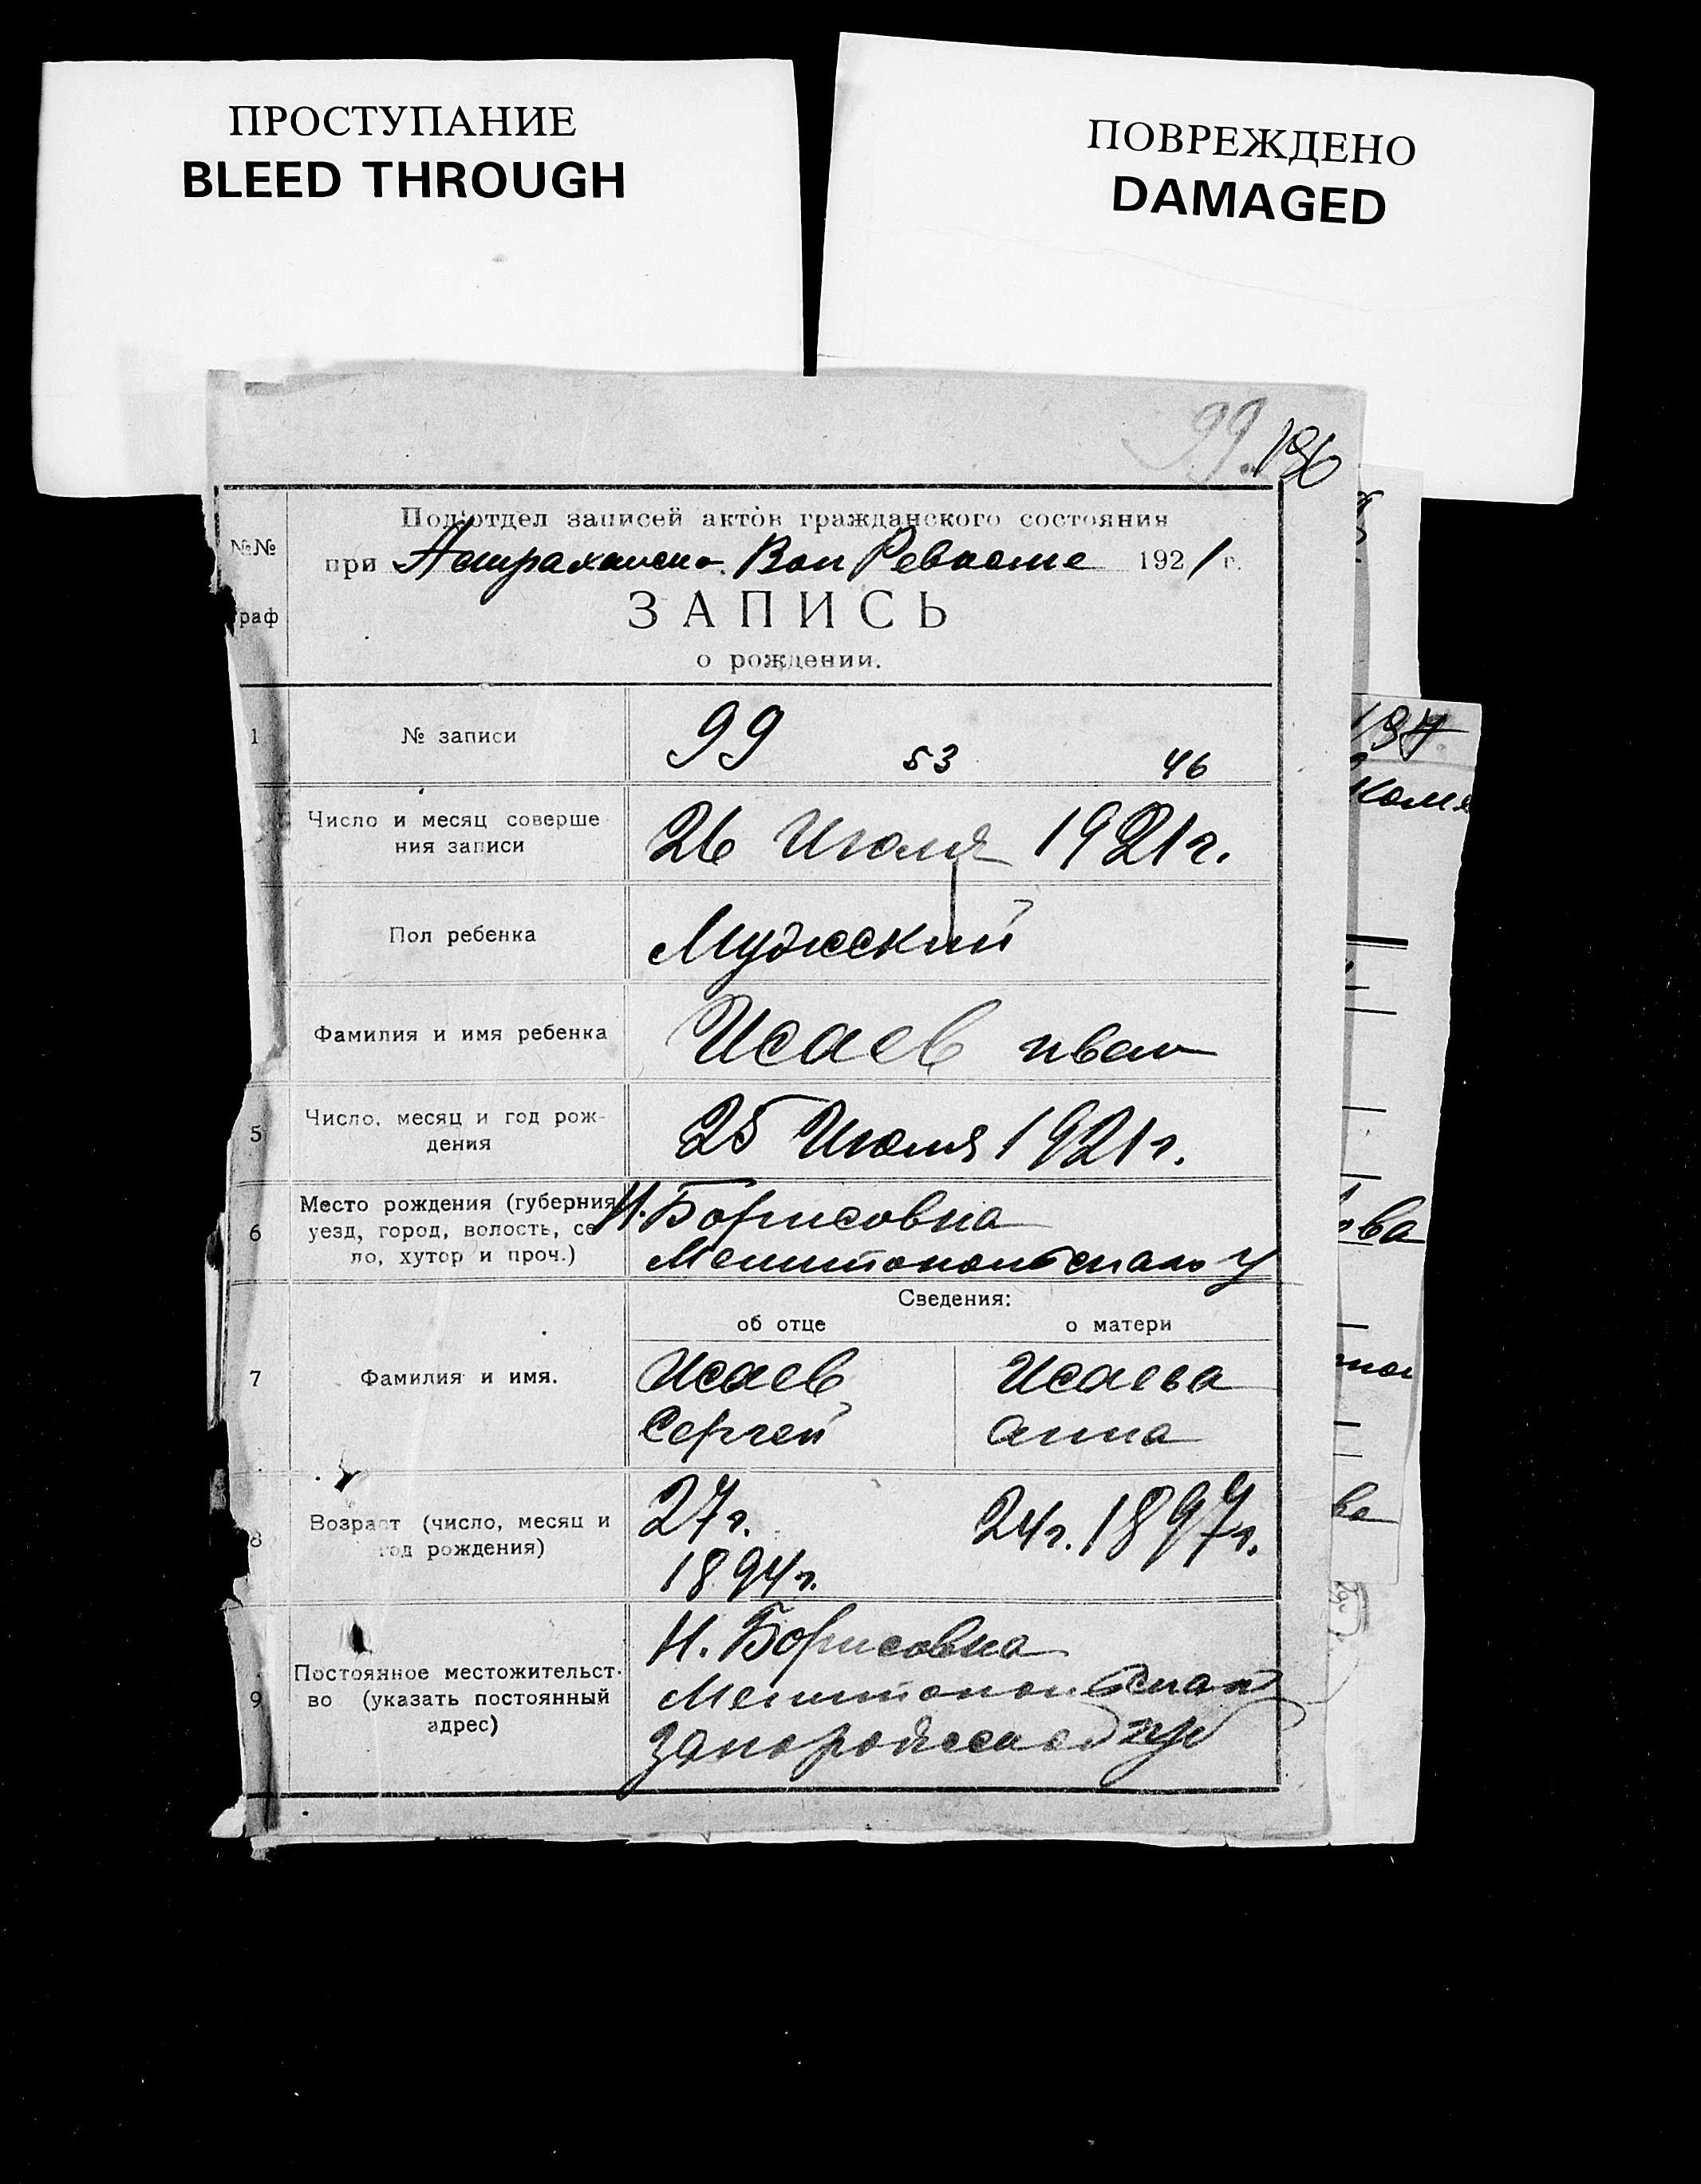 ПРОСТУПАНИЕ
BLEED THROUGH
ПОВРЕЖДЕНО
DAMAGED
99. 196
Под'отдел записей актов гражданского состояния
№№ при Астраханско. Вол Ревкоме 1921 г.
граф
ЗАПИСЬ
о рождении.
1 № записи 99 53 46
Число и месяц соверше
ния записи
26 Июля 1921 г.
Пол ребенка Мужский
Фамилия и имя ребенка Исаев иван
5 Число, месяц и год рож-
дения
25 Июля 1921 г.
6 Место рождения (губерния
уезд, город, волость, се
ло, хутор и проч.)
Н. Борисовка
Мелитопольскаго У
Сведения:
об отце о матери
7 Фамилия и имя.
Исаев Исаева
Сергей анна
8 Возраст (число, месяц и
год рождения)
27 г. 24 г. 1897 г.
1894 г.
9 Постоянное местожительст-
во (указать постоянный
адрес)
Н. Борисовка
Мелитопольскаго
Запорожской губ
197